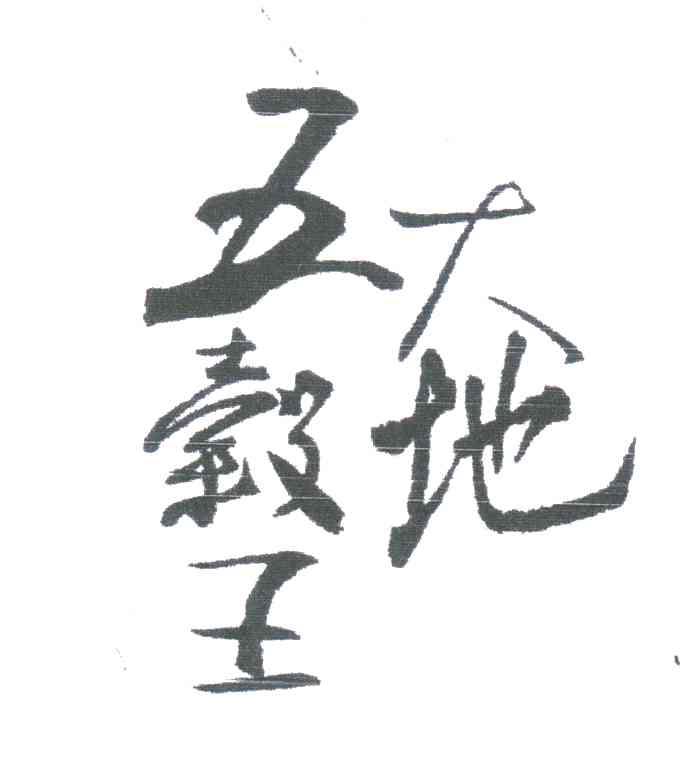 大地
五穀王